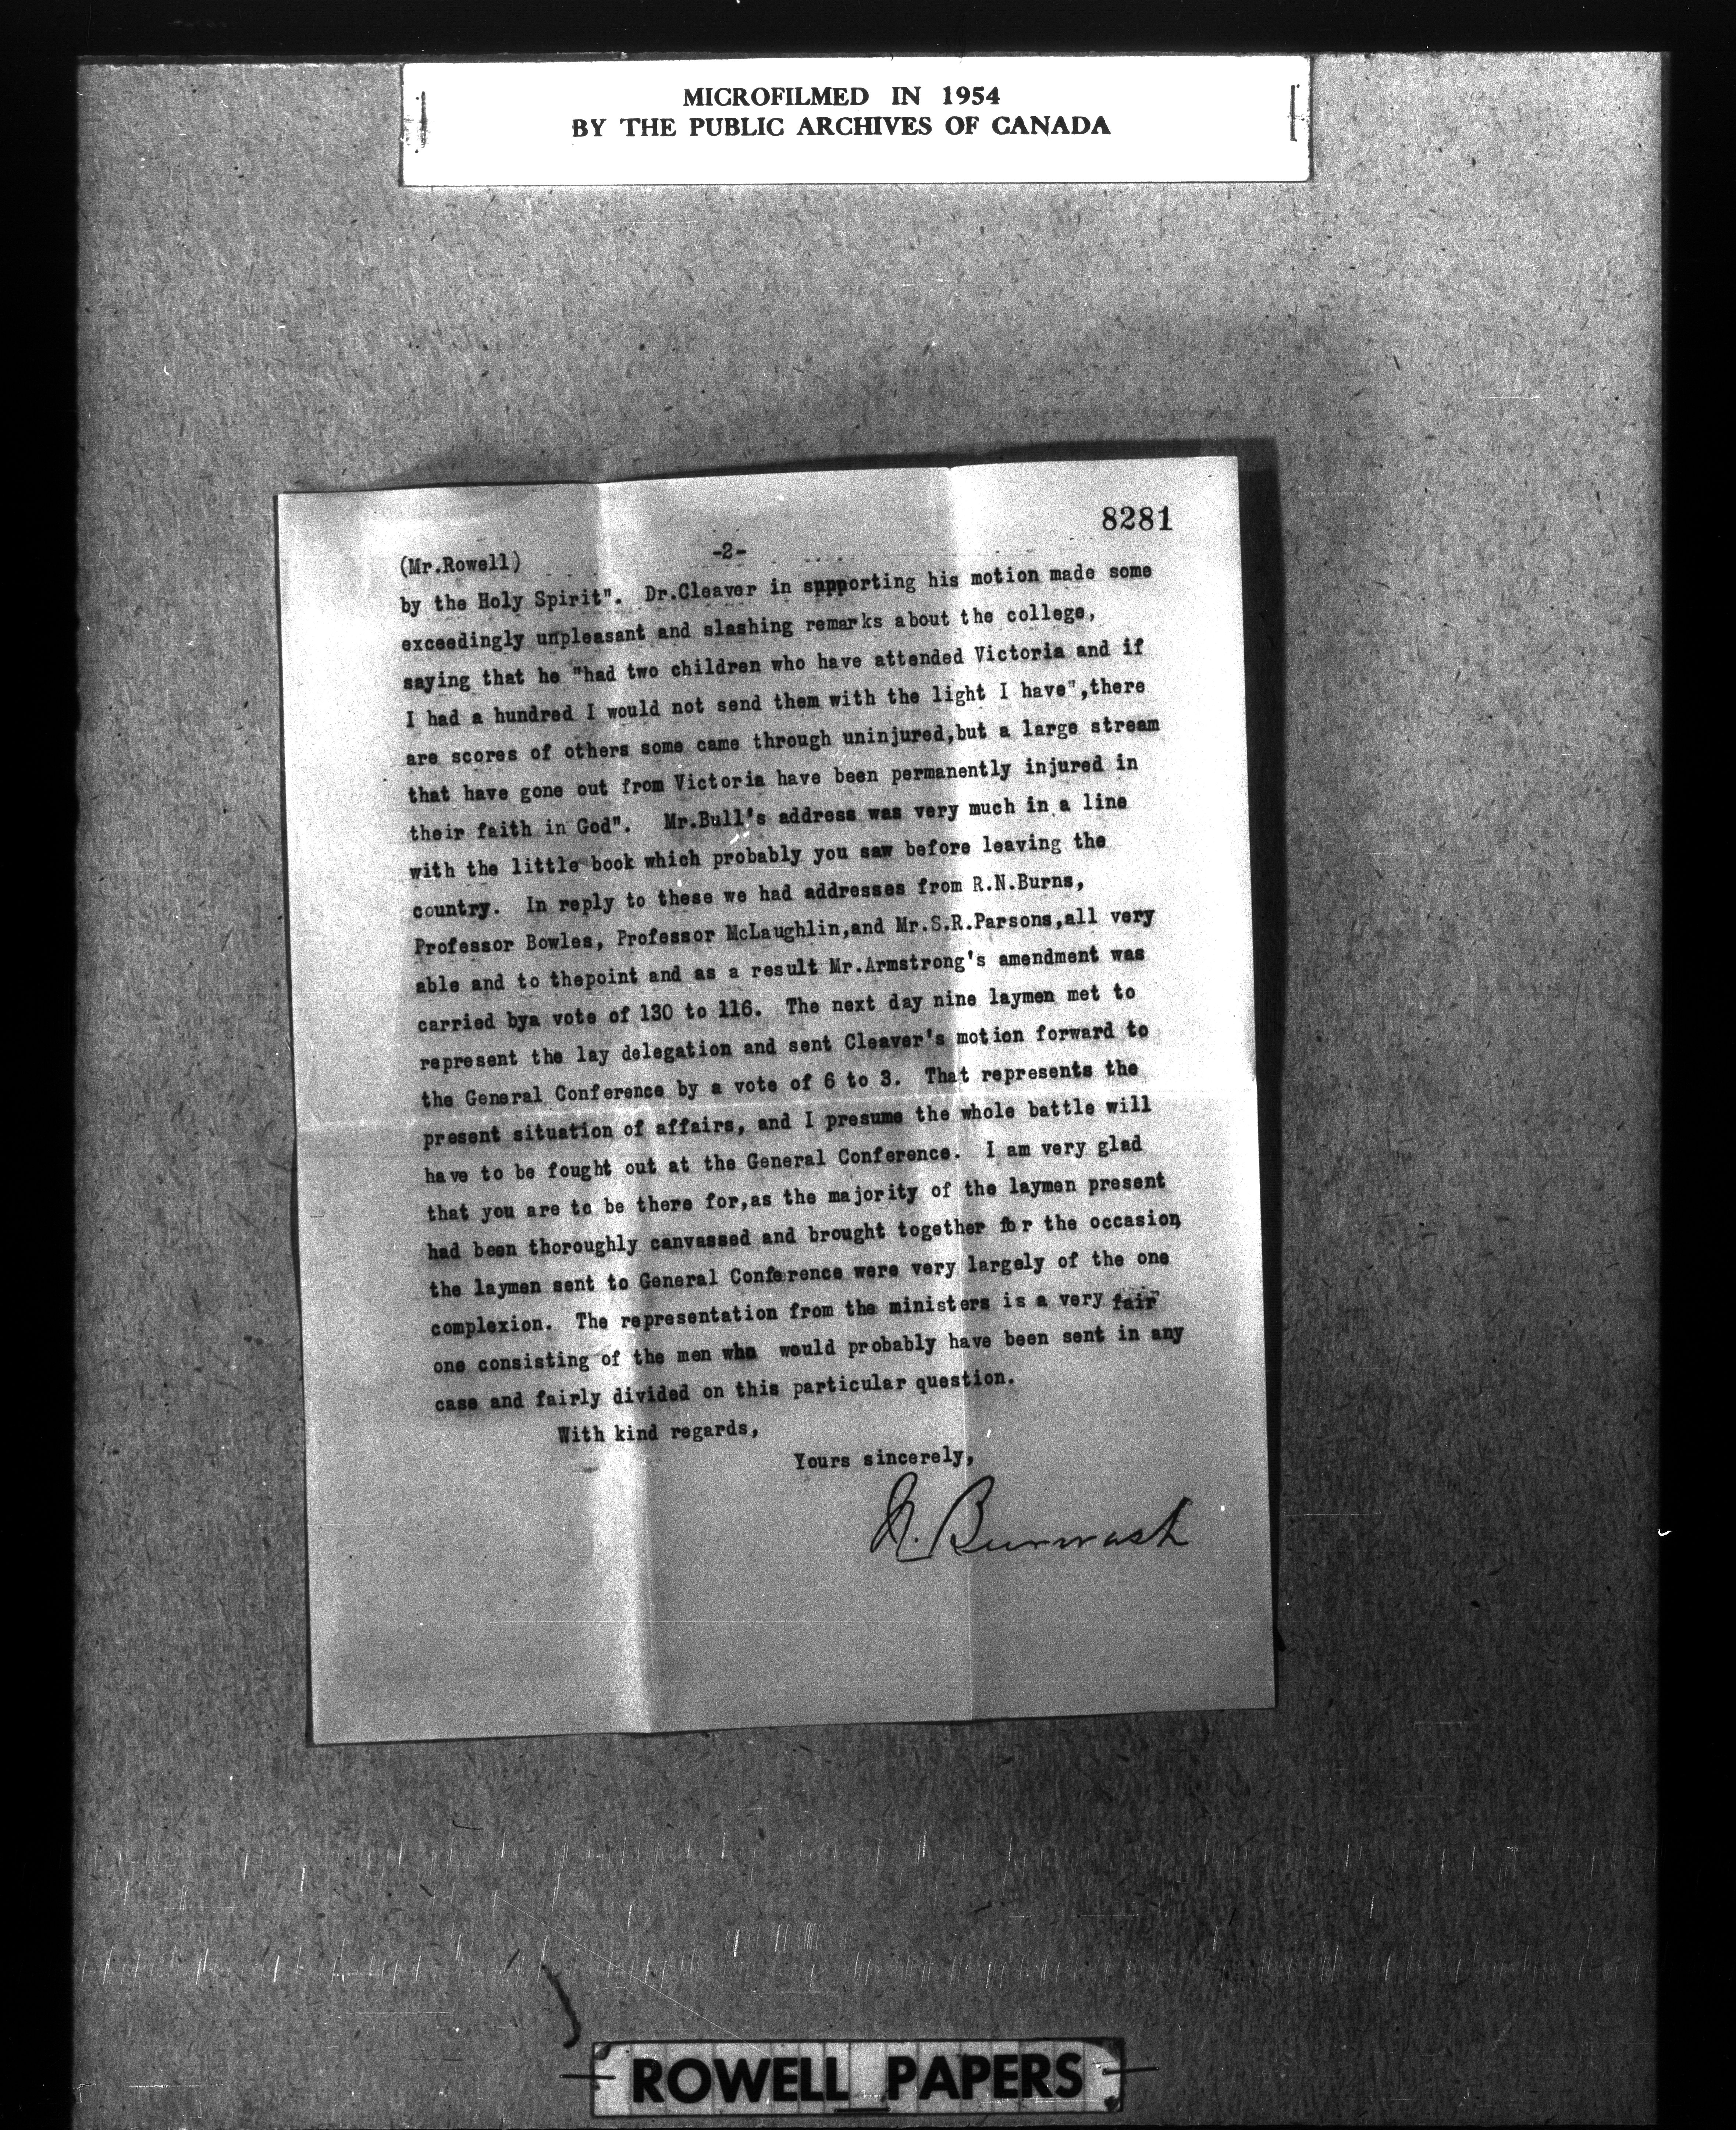 MICROFILMED IN 1954
BY THE PUBLIC ARCHIVES OF CANADA
8281
(Mr.Rowell) -2-
by the Holy Spirit". Dr.Cleaver in sppporting his motion made some
exceedingly unpleasant and slashing remarks about the college,
saying that he "had two children who have attended Victoria and if
I had a hundred I would not send them with the light I have",there
are scores of others some came through uninjured,but a large stream
that have gone out from Victoria have been permanently injured in
their faith in God". Mr.Bull's address was very much in a line
with the little book which probably you saw before leaving the
country. In reply to these we had addresses from R.N.Burns,
Professor Bowles, Professor McLaughlin,and Mr.S.R.Parsons,all very
able and to thepoint and as a result Mr.Armstrong's amendment was
carried bya vote of 130 to 116. The next day nine laymen met to
represent the lay delegation and sent Cleaver's motion forward to
the General Conference by a vote of 6 to 3. That represents the
present situation of affairs, and I presume the whole battle will
have to be fought out at the General Conference. I am very glad
that you are to be there for,as the majority of the laymen present
had been thoroughly canvassed and brought together for the occasion
the laymen sent to General Conference were very largely of the one
complexion. The representation from the ministers is a very fair
one consisting of the men who would probably have been sent in any
case and fairly divided on this particular question.
With kind regards,
Yours sincerely,
N. Burwash
ROWELL PAPERS